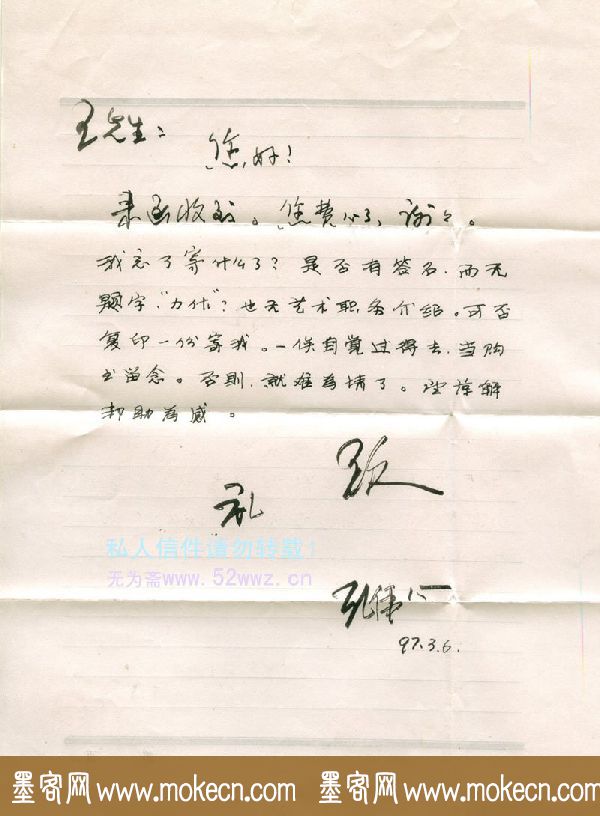 王先生：
您好！
来函收到。您费心了，谢谢。
我忘了寄什么了？是否有签名，而无
题字，"力作"？也无艺术职务介绍。可否
复印一份寄我。一俟自觉过得去，当购
以留念。否则，就难为情了。望谅解
邦助为感。
致
礼
97.3.6.
私人信件请勿转载！
无为斋www.52wwz.cn
墨客网 www.mokecn.com 墨客网 www.mokecn.com